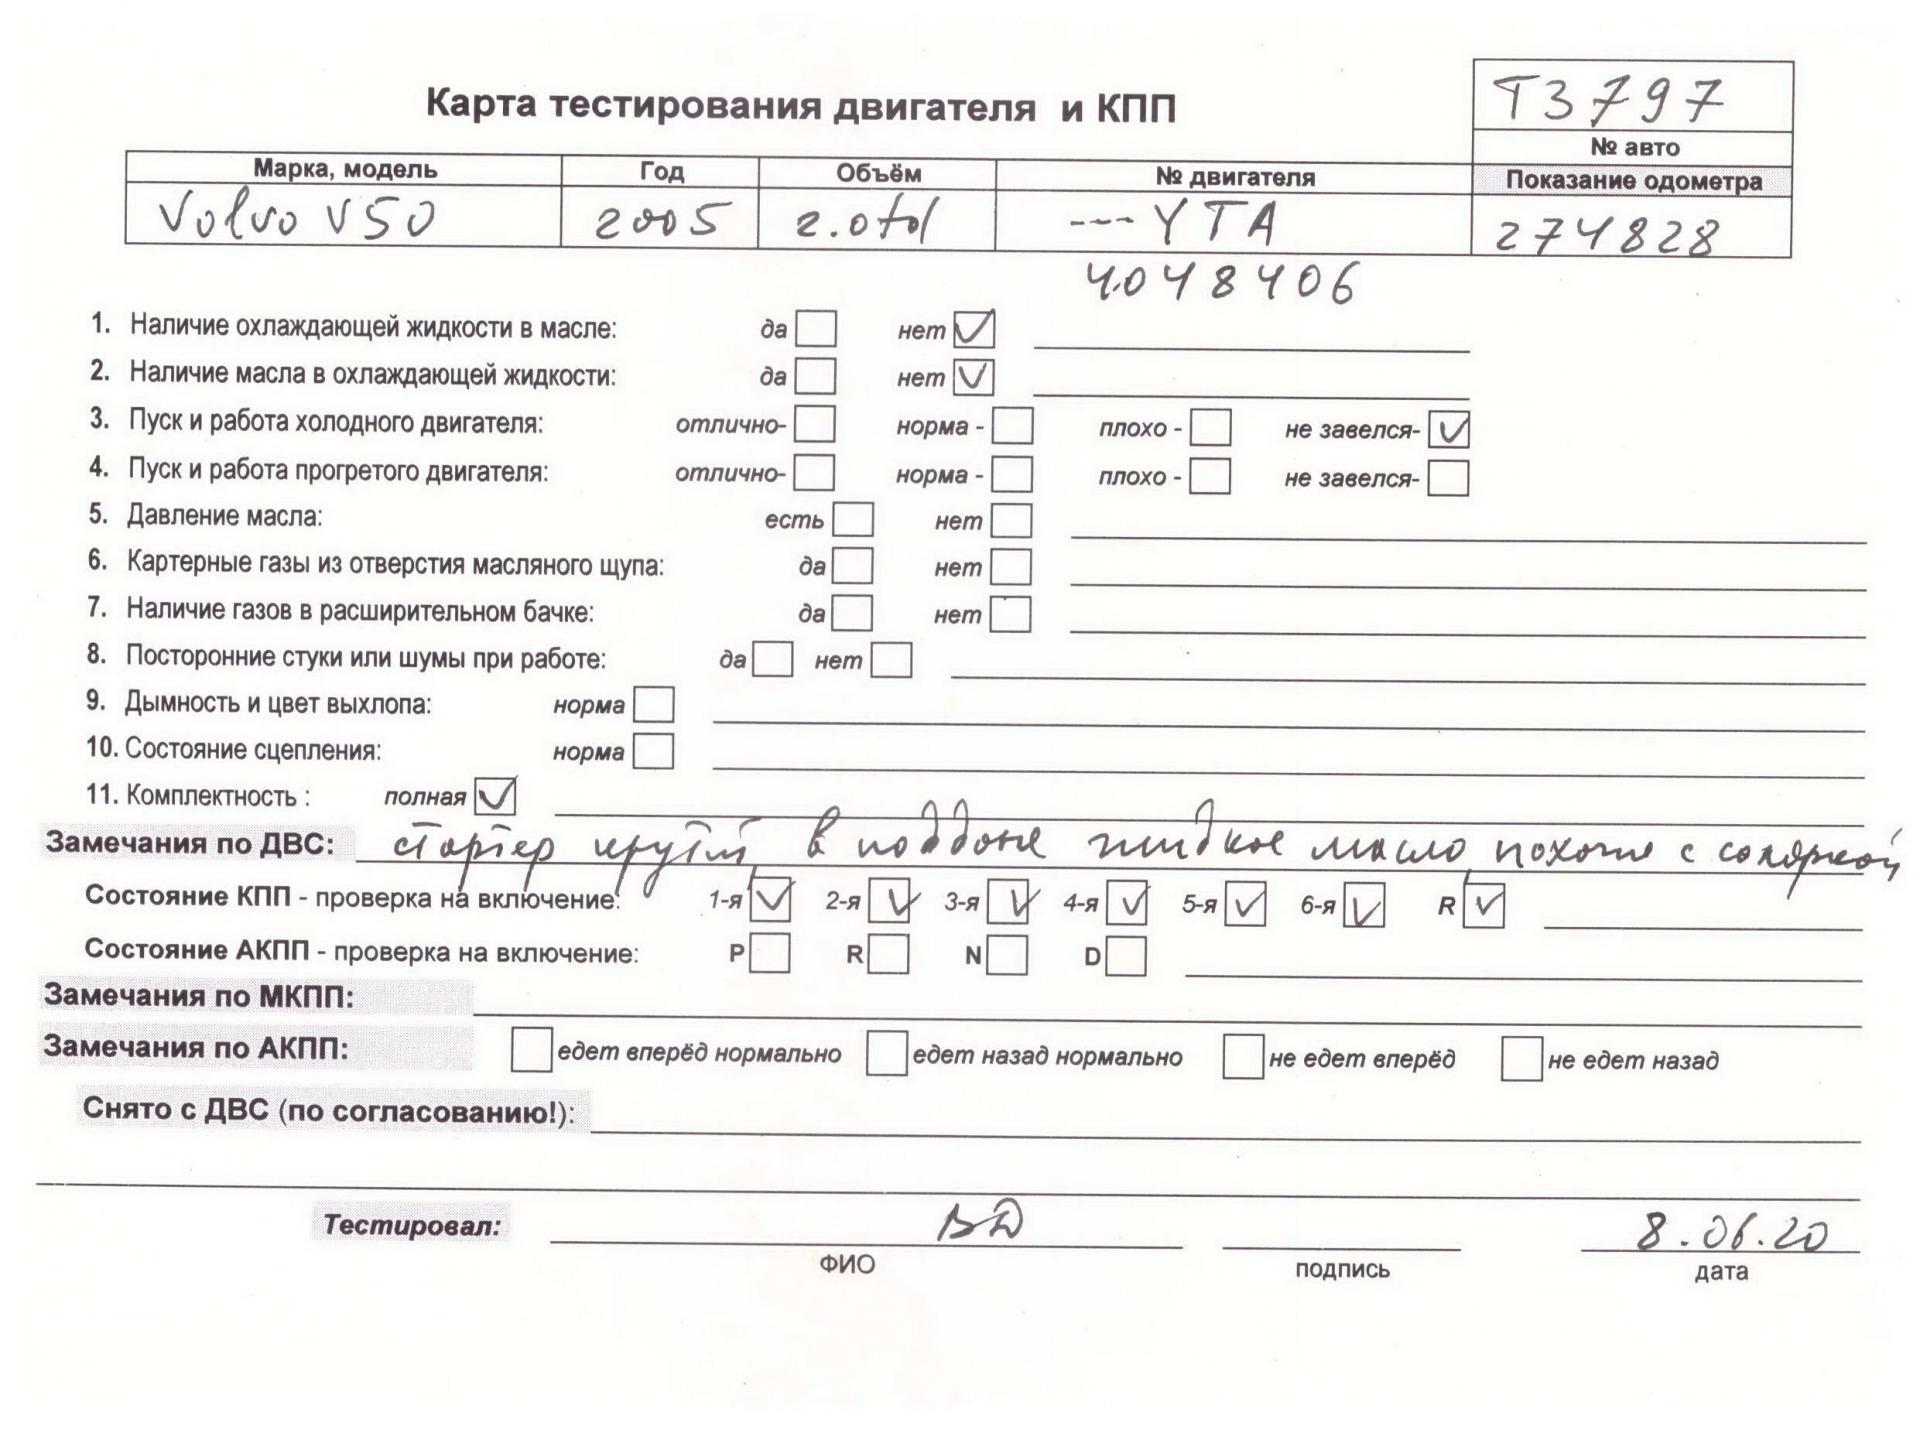 Карта тестирования двигателя и КПП
T3797
№ авто
Марка, модель Год Объём № двигателя Показание одометра
Volvo V50 2005 2.0td ---YTA 274828
4048406
1. Наличие охлаждающей жидкости в масле: да нет
2. Наличие масла в охлаждающей жидкости: да нет
3. Пуск и работа холодного двигателя: отлично- норма - плохо - не завелся-
4. Пуск и работа прогретого двигателя: отлично- норма - плохо - не завелся-
5. Давление масла: есть нет
6. Картерные газы из отверстия масляного щупа: да нет
7. Наличие газов в расширительном бачке: да нет
8. Посторонние стуки или шумы при работе: да нет
9. Дымность и цвет выхлопа: норма
10. Состояние сцепления: норма
11. Комплектность : полная
Замечания по ДВС: стартер крутит, в поддоне жидкое масло, похоже с соляркой
Состояние КПП - проверка на включение: 1-я 2-я 3-я 4-я 5-я 6-я R
Состояние АКПП - проверка на включение: P R N D
Замечания по МКПП:
Замечания по АКПП: едет вперёд нормально едет назад нормально не едет вперёд не едет назад
Снято с ДВС (по согласованию!):
Тестировал: 8.06.20
ФИО подпись дата